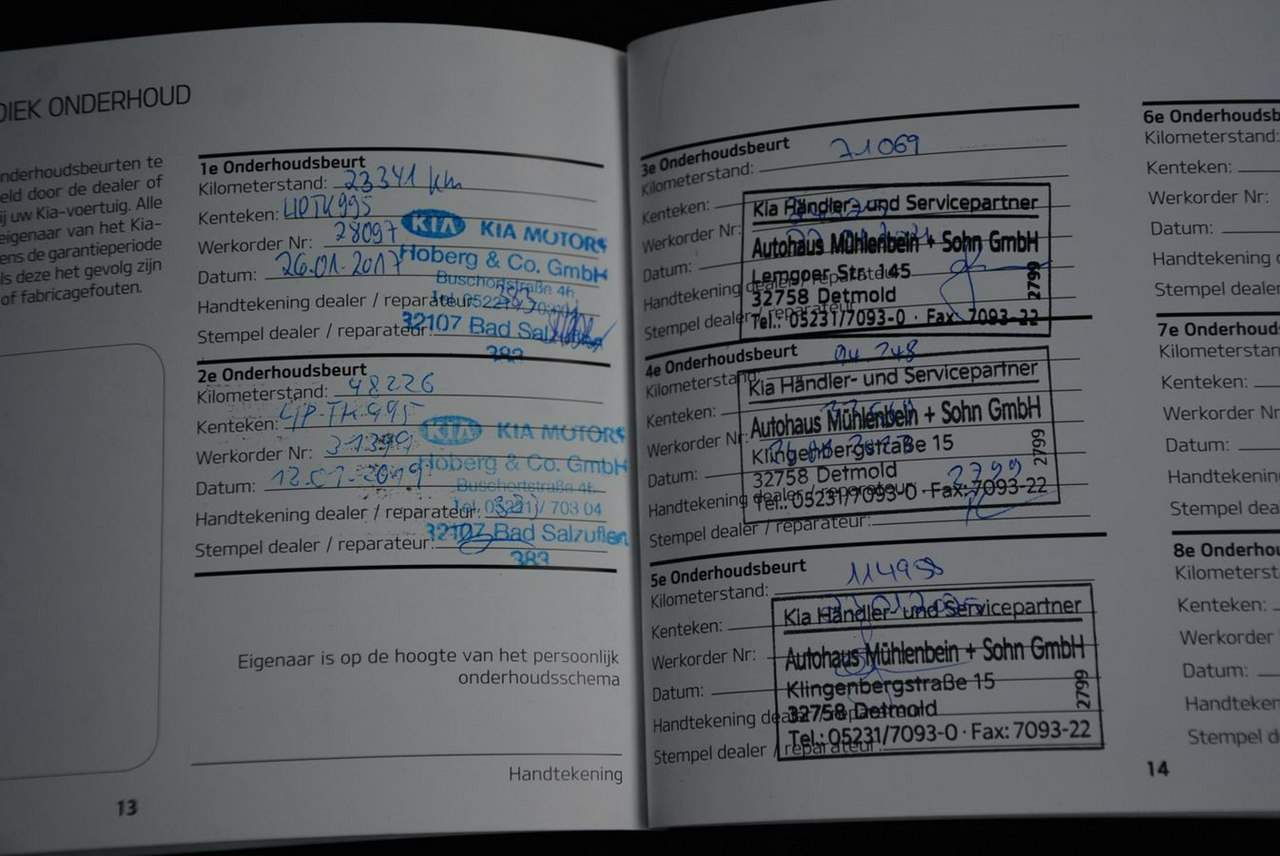 DIEK ONDERHOUD
nderhoudsbeurten te
eld door de dealer of
ij uw Kia-voertuig. Alle
eigenaar van het Kia-
ens de garantieperiode
ls deze het gevolg zijn
of fabricagefouten.
1e Onderhoudsbeurt
Kilometerstand: 23341 km
Kenteken:
Werkorder Nr: 28097
Datum: 26.01.2017
Handtekening dealer / reparateur:
Stempel dealer / reparateur:
KIA KIA MOTORS
Hoberg & Co. GmbH
Buschortstraße 46
32107 Bad Salzuflen
383
2e Onderhoudsbeurt
Kilometerstand: 48226
Kenteken:
Werkorder Nr: 31399
Datum:
Handtekening dealer / reparateur:
Stempel dealer / reparateur:
KIA KIA MOTORS
Hoberg & Co. GmbH
Buschortstraße 46
703 04
32107 Bad Salzuflen
383
Eigenaar is op de hoogte van het persoonlijk
onderhoudsschema
Handtekening
13
3e Onderhoudsbeurt
Kilometerstand: 71069
Kenteken:
Werkorder Nr:
Datum:
Handtekening dealer / reparateur:
Stempel dealer / reparateur:
Kia Händler- und Servicepartner
Autohaus Mühlenbein + Sohn GmbH
Lemgoer Str. 145
32758 Detmold
Tel.: 05231/7093-0 · Fax 7093-22
2799
4e Onderhoudsbeurt
Kilometerstand: 94 248
Kenteken:
Werkorder Nr:
Datum:
Handtekening dealer / reparateur:
Stempel dealer / reparateur:
Kia Händler- und Servicepartner
Autohaus Mühlenbein + Sohn GmbH
Klingenbergstraße 15
32758 Detmold
Tel.: 05231/7093-0 · Fax: 7093-22
2799
2799
5e Onderhoudsbeurt
Kilometerstand:
Kenteken:
Werkorder Nr:
Datum:
Handtekening dealer / reparateur:
Stempel dealer / reparateur:
Kia Händler- und Servicepartner
Autohaus Mühlenbein + Sohn GmbH
Klingenbergstraße 15
32758 Detmold
Tel.: 05231/7093-0 · Fax: 7093-22
2799
14
6e Onderhoudsb
Kilometerstand:
Kenteken:
Werkorder Nr:
Datum:
Handtekening d
Stempel deale
7e Onderhoud
Kilometerstan
Kenteken:
Werkorder N
Datum:
Handtekenin
Stempel dea
8e Onderho
Kilometerst
Kenteken:
Werkorder
Datum:
Handteken
Stempel d